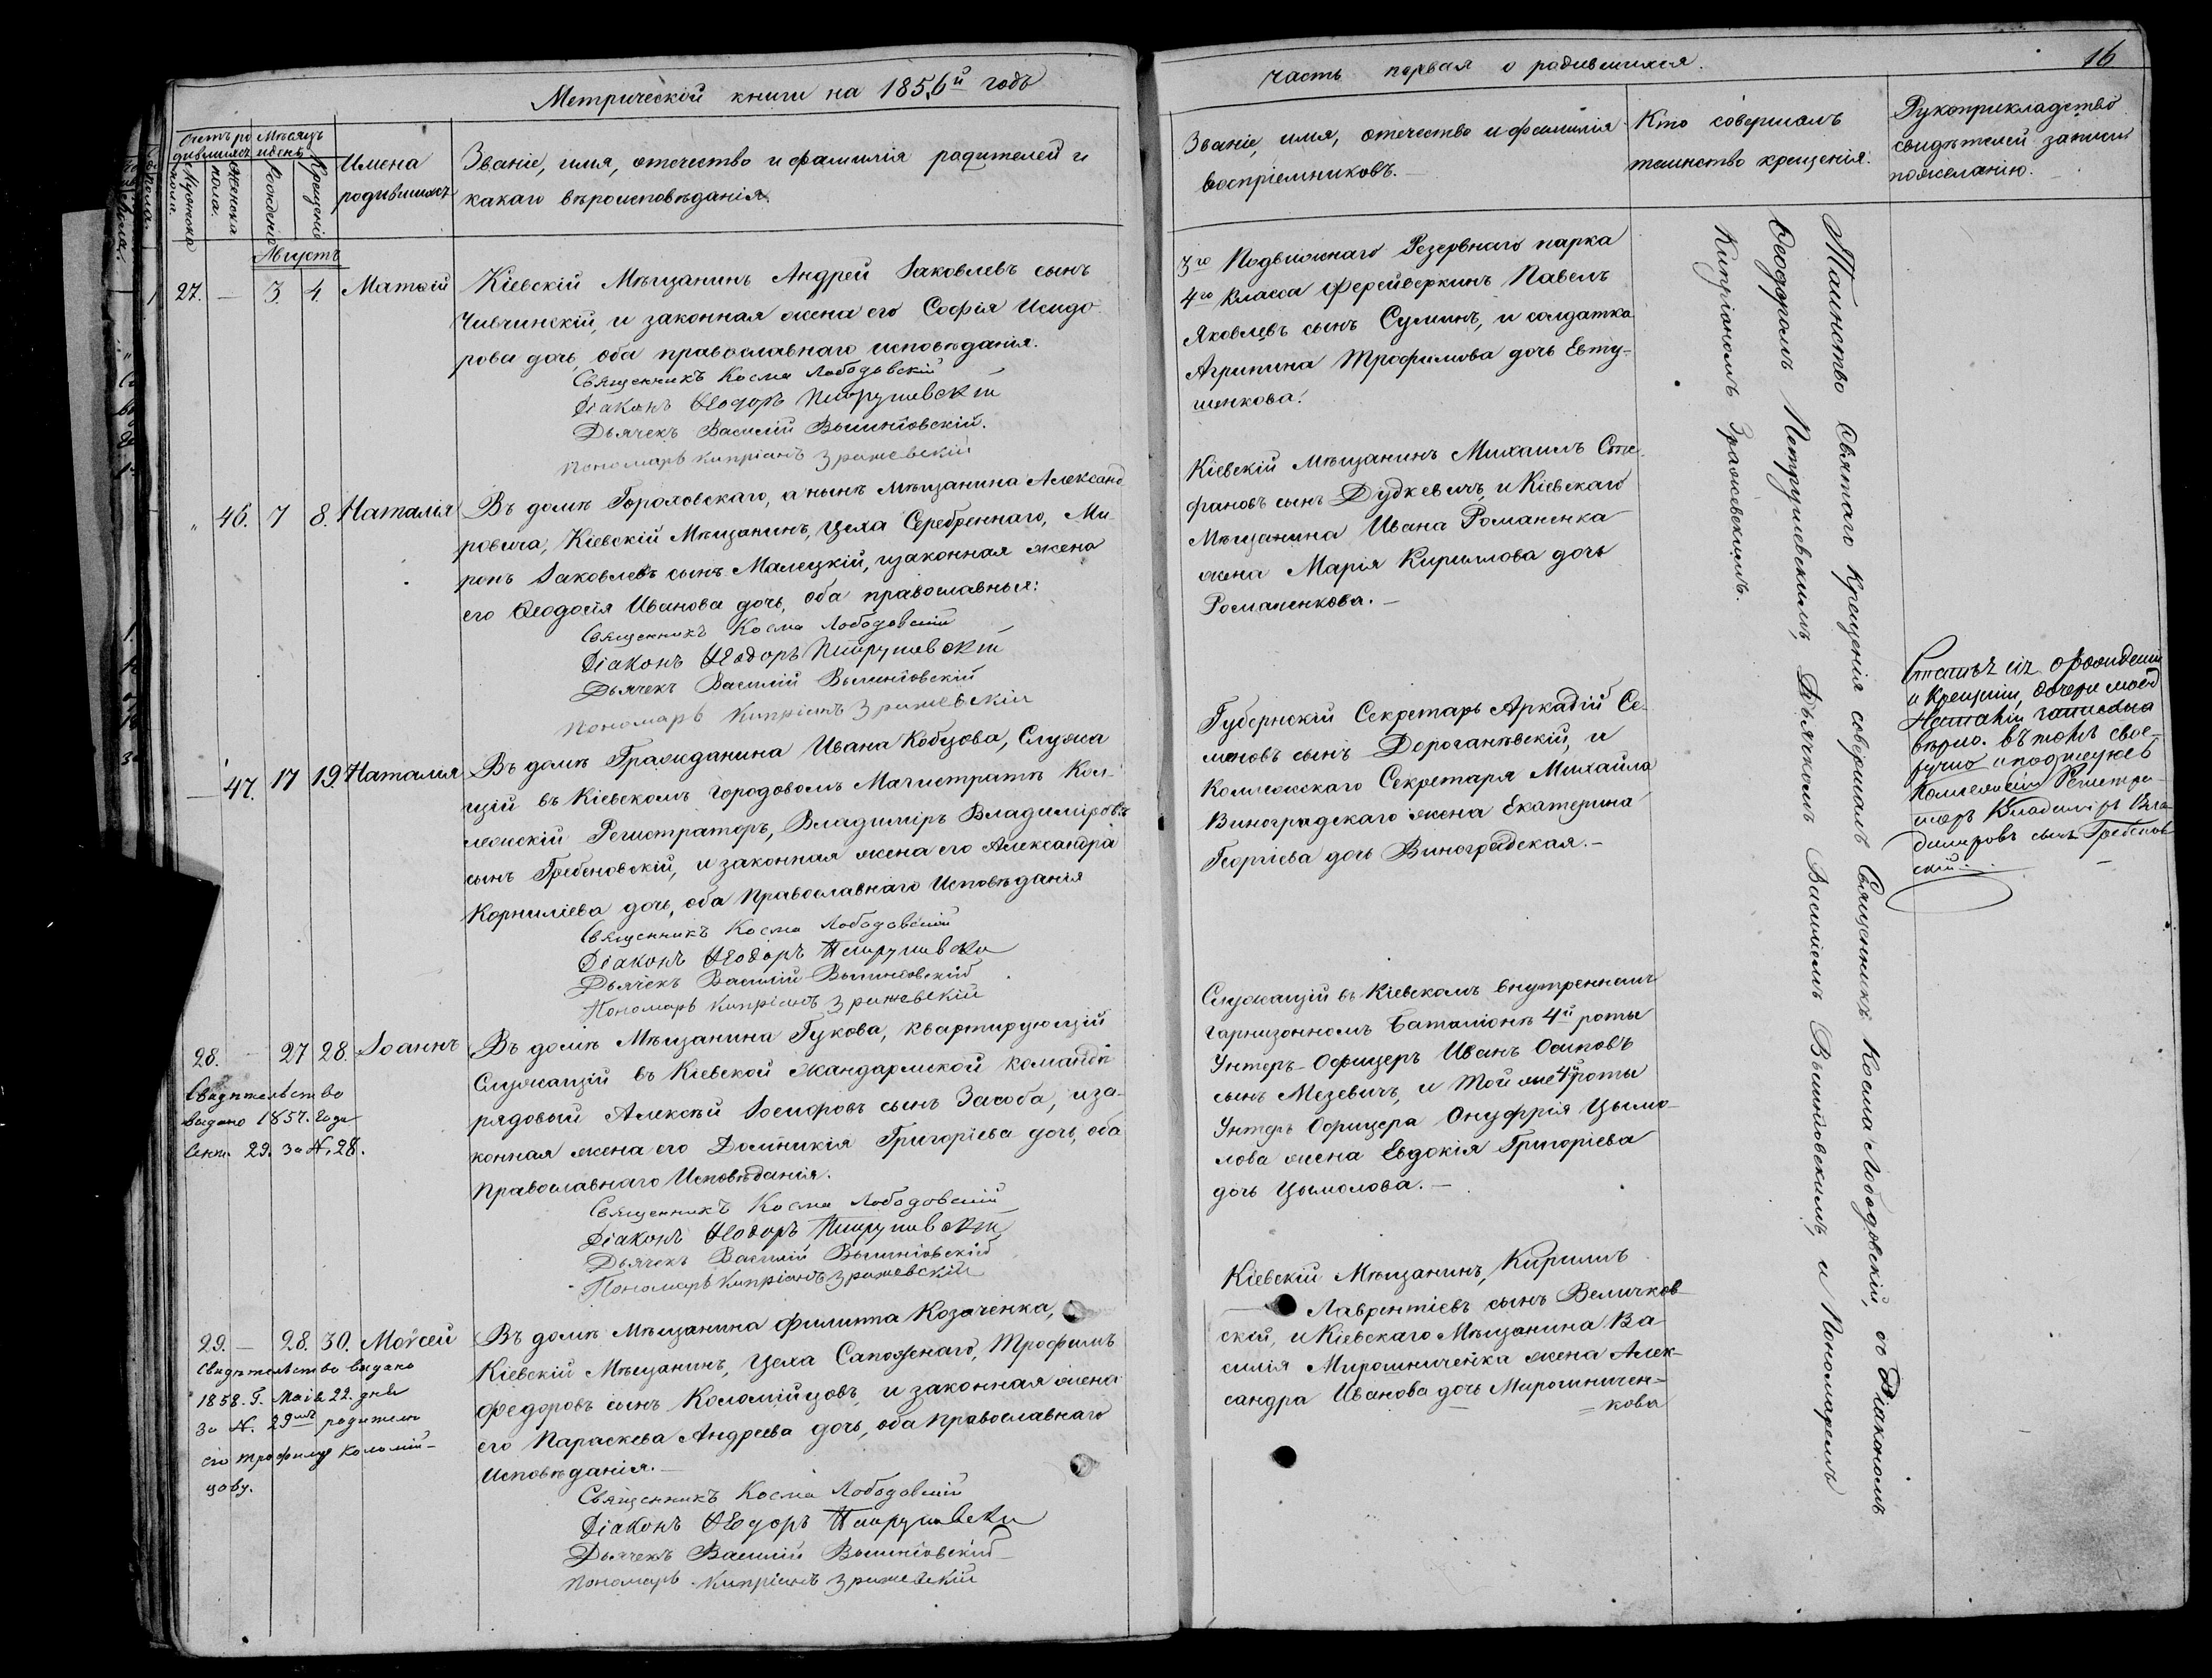 Метрической книги на 1856й годъ
Счетъ ро
дившихся
Мѣсяцъ
и день
Мужеска
пола.
Женска
пола.
Рожденія
Крещенія
Имена
родившихся
Званіе, имя, отечество и фамилія родителей и
какаго вѣроисповѣданія.
Августъ
27. — 3. 4. Матвій
Кіевскій Мѣщанинъ Андрей Іаковлевъ сынъ
Чивчинскій, и законная жена его Софія Исидо
рова дочь, оба православнаго исповѣданія.
Священникъ Косма Лободовскій
Діаконъ Ѳеодоръ Петрушевскій
Дьячекъ Василій Вышинскій.
Пономарь Кипріанъ Зражевскій
„ 46. 7 8. Наталія
Въ домѣ Гороховскаго, а нынѣ мѣщанина Александ
ровича, Кіевскій Мѣщанинъ, Цеха Серебреннаго, Ми-
ронъ Іаковлевъ сынъ Малецкій, изаконная жена
его Ѳеодосія Иванова дочь, оба православные:
Священникъ Косма Лободовскій
Діаконъ Ѳеодоръ Петрушевскій
Дьячекъ Василій
Пономарь Кипріанъ Зражевскій
— 47. 17 19. Наталія
Въ домѣ Гражданина Ивана Кобцова, Служа
щій въ Кіевскомъ городовомъ Магистратѣ Кол-
лежскій Регистраторъ, Владиміръ Владиміровъ
сынъ Гребеновскій, и законная жена его Александра
Корниліева дочь, оба Православнаго Исповѣданія
Священникъ Косма Лободовскій
Діаконъ Ѳеодоръ Петрушевскій
Дьячекъ Василій
Пономарь Кипріанъ Зражевскій
28. — 27 28. Іоаннъ
Свидѣтельство
выдано 1857. года
Сент. 29. за N. 28.
Въ домѣ Мѣщанина Гукова, квартирующій
Служащій въ Кіевской жандармской командѣ
рядовый Алексѣй Іосифовъ сынъ Засоба, иза-
конная жена его Домникія Григоріева дочь, оба
Православнаго Исповѣданія.
Священникъ Косма Лободовскій
Діаконъ Ѳеодоръ Петрушевскій
Дьячекъ Василій
Пономарь Кипріанъ Зражевскій
29. — 28. 30. Моѵсей
Свидѣтельство выдано
1858. Г. Маія 22. дня
За N. 29мъ родителю
его Трофиму Коломій-
цову.
Въ домѣ Мѣщанина Филиппа Козаченка,
Кіевскій Мѣщанинъ, Цеха Сапожнаго, Трофимъ
Федоровъ сынъ Коломійцовъ, и законная жена
его Параскева Андреева дочь, оба православнаго
Исповѣданія. —
Священникъ Косма Лободовскій
Діаконъ Ѳеодоръ Петрушевскій
Дьячекъ Василій
Пономарь Кипріанъ Зражевскій
часть первая о родившихся.
16
Званіе, имя, отечество и фамилія
воспріемниковъ. —
Кто совершалъ
таинство крещенія.
Рукоприкладство
свидѣтелей записи
пожеланію.
3го Подвижнаго Резервнаго парка
4го класса Ферейверкинъ Павелъ
Яковлевъ сынъ Суминъ, и солдатка
Агрипина Трофимова дочь Евту-
шенкова.
Кіевскій Мѣщанинъ Михаилъ Сте
фановъ сынъ Дудкевичъ, и Кіевскаго
Мѣщанина Ивана Романенка
жена Марія Кириллова дочь
Романенкова. —
Губернскій Секретарь Аркадій Се-
меновъ сынъ Дороганѣвскій, и
Коллежскаго Секретаря Михаила
Виноградскаго жена Екатерина
Георгіева дочь Виноградская. —
Служащій въ Кіевскомъ внутреннемъ
гарнизонномъ баталіонѣ 4й роты
Унтеръ-Офицеръ Иванъ Осиповъ
сынъ Мезевичъ, и той же 4й роты
Унтеръ Офицера Онуфрія Цымо-
лова жена Евдокія Григоріева
дочь Цымолова. —
Кіевскій Мѣщанинъ, Кирилъ
Лаврентіевъ сынъ Величков-
скій, и Кіевскаго Мѣщанина Ва-
силія Мирошниченка жена Алек-
сандра Иванова дочь Мирошничен-
=кова
Таинство Святаго Крещенія совершалъ Священникъ Косма Лободовскій, со Діакономъ
Ѳеодоромъ Петрушевскимъ, Дьячкомъ Василіемъ Вышинскимъ, и Пономаремъ
Кипріаномъ Зражевскимъ.
о рожденіи
и крещеніи, дочери моей
Наталіи записана
вѣрно. Въ томъ свое-
ручно и подписуюсь
Коллежскій Регистра-
торъ Владиміръ Вла-
димировъ сынъ Гребенов
скій.